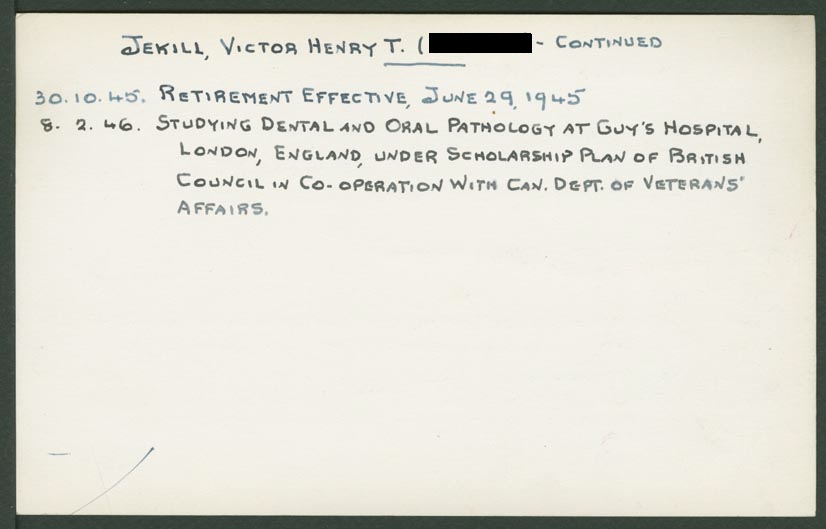 JEKILL, VICTOR HENRY T. ( - CONTINUED
30.10.45. RETIREMENT EFFECTIVE, JUNE 29, 1945
8. 2. 46. STUDYING DENTAL AND ORAL PATHOLOGY AT GUY'S HOSPITAL,
LONDON, ENGLAND, UNDER SCHOLARSHIP PLAN OF BRITISH
COUNCIL IN CO-OPERATION WITH CAN. DEPT. OF VETERANS'
AFFAIRS.